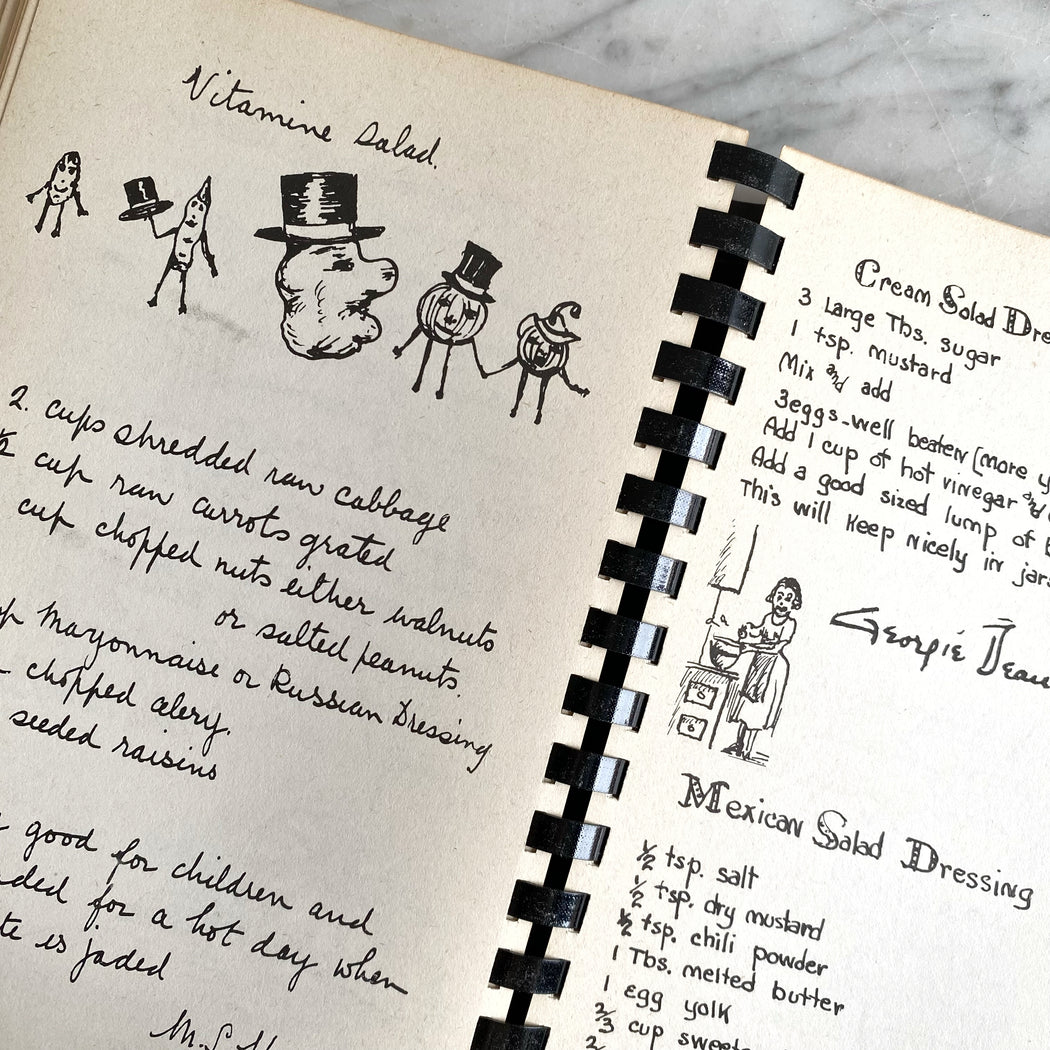 Vitamine Salad.
2. cups shredded raw cabbage
½ cup raw carrots grated
cup chopped nuts either walnuts
or salted peanuts.
Mayonnaise or Russian Dressing
chopped celery.
seeded raisins
good for children and
for a hot day when
is jaded
Cream Salad
3 Large Tbs. sugar
1 tsp. mustard
Mix and add
3 eggs-well beaten (more
Add 1 cup of hot vinegar and
Add a good sized lump of
This will keep nicely in jars
Georgie
Mexican Salad Dressing
½ tsp. salt
½ tsp. dry mustard
½ tsp. chili powder
1 Tbs. melted butter
1 Egg yolk
⅔ cup